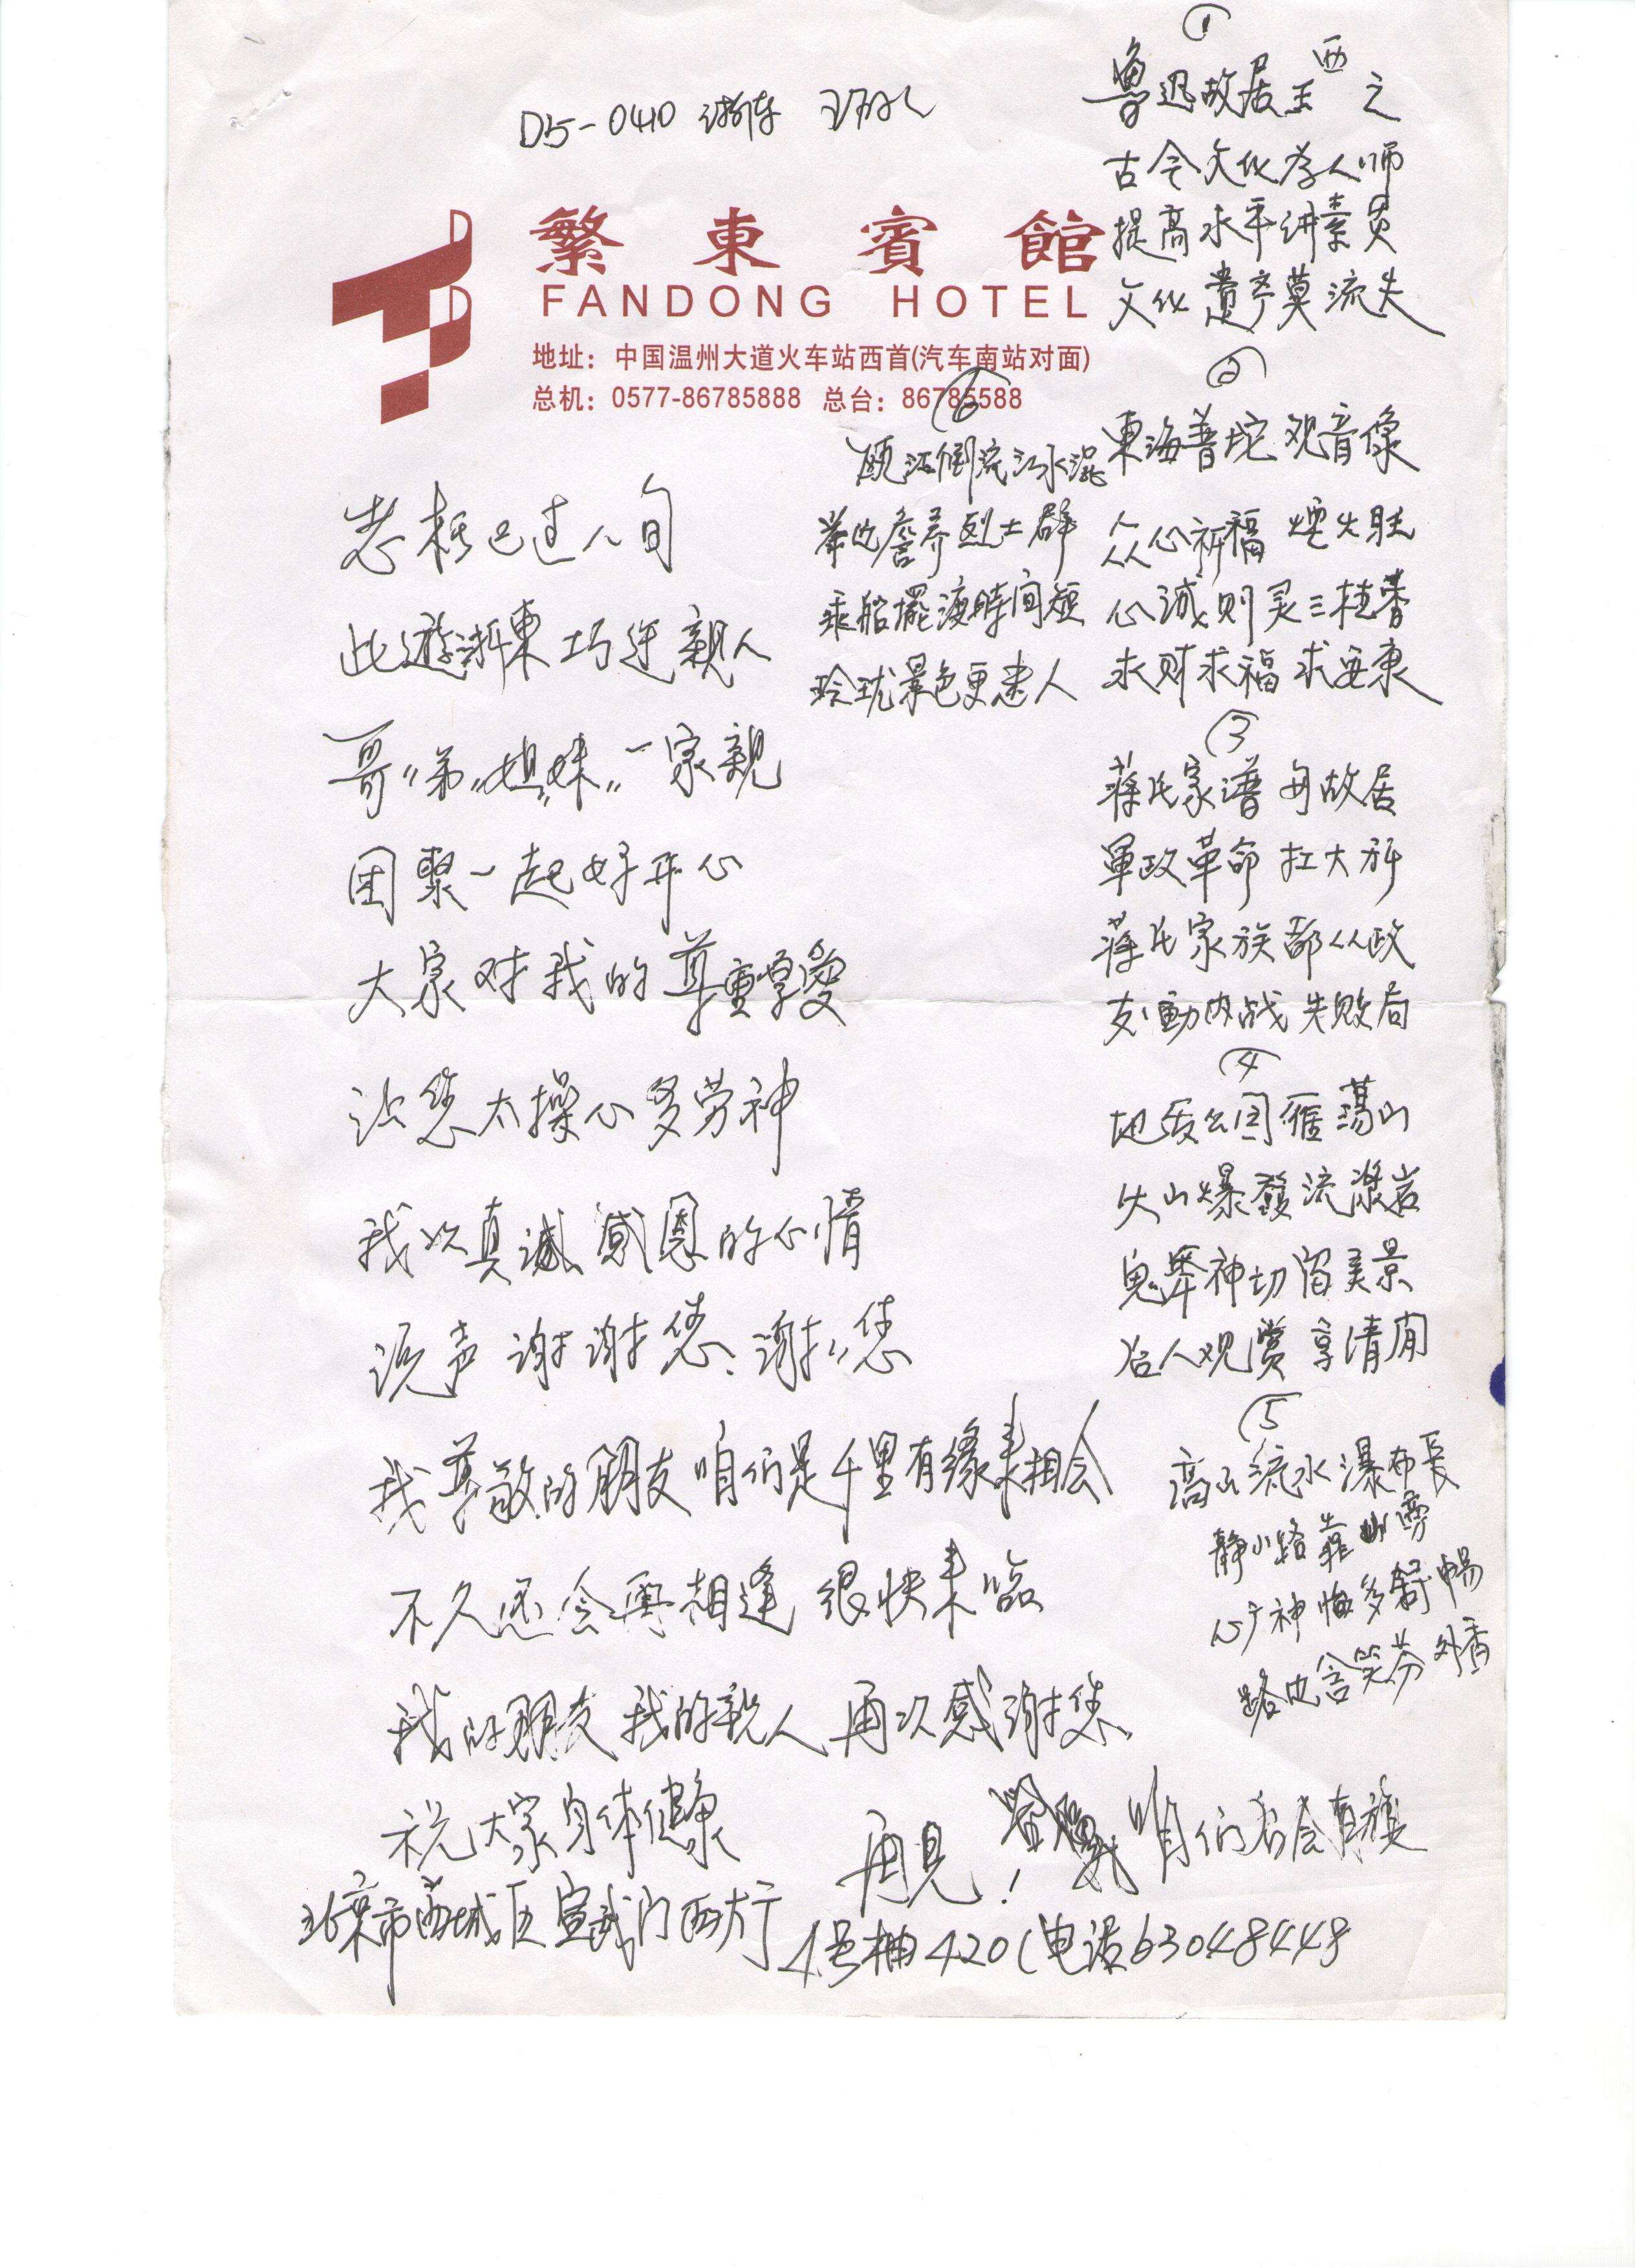 D5-0410 浙东
繁東賓館
FANDONG HOTEL
地址：中国温州大道火车站西首(汽车南站对面)
总机：0577-86785888 总台：86785588
已过八旬
此遊浙東巧逢親人
哥〃弟〃姐〃妹〃一家親
团聚一起好开心
大家对我的尊重厚爱
让您太操心多劳神
我以真诚感恩的心情
说声谢谢您、谢谢〃您
我尊敬的朋友咱们是千里有缘来相会
不久还会再相逢很快来临
我的朋友我的親人再次感谢您
祝大家身体健康
再见！咱们后会有
北京市西城区宣武门西大街
4号楠420(电话63048448
①
鲁迅故居王西之
古今文化孝人师
提高水平讲素质
文化遗产莫流失
②
東海普坨观音像
众心祈福煙火旺
心诚则灵三柱香
求财求福求安康
③
蒋氏家谱毋故居
軍政革命扛大旂
蒋氏家族都从政
友動内战失败局
④
地质公园雁蕩山
火山爆發流漿岩
鬼斧神切留美景
后人观赏享清闲
⑤
高山流水瀑布長
静小路靠山旁
心广神怡多舒暢
路边含笑芬外香
⑥
瓯江倒流江水混
岸边詹养烈士群
乘船擺渡時间短
玲珑景色更迷人